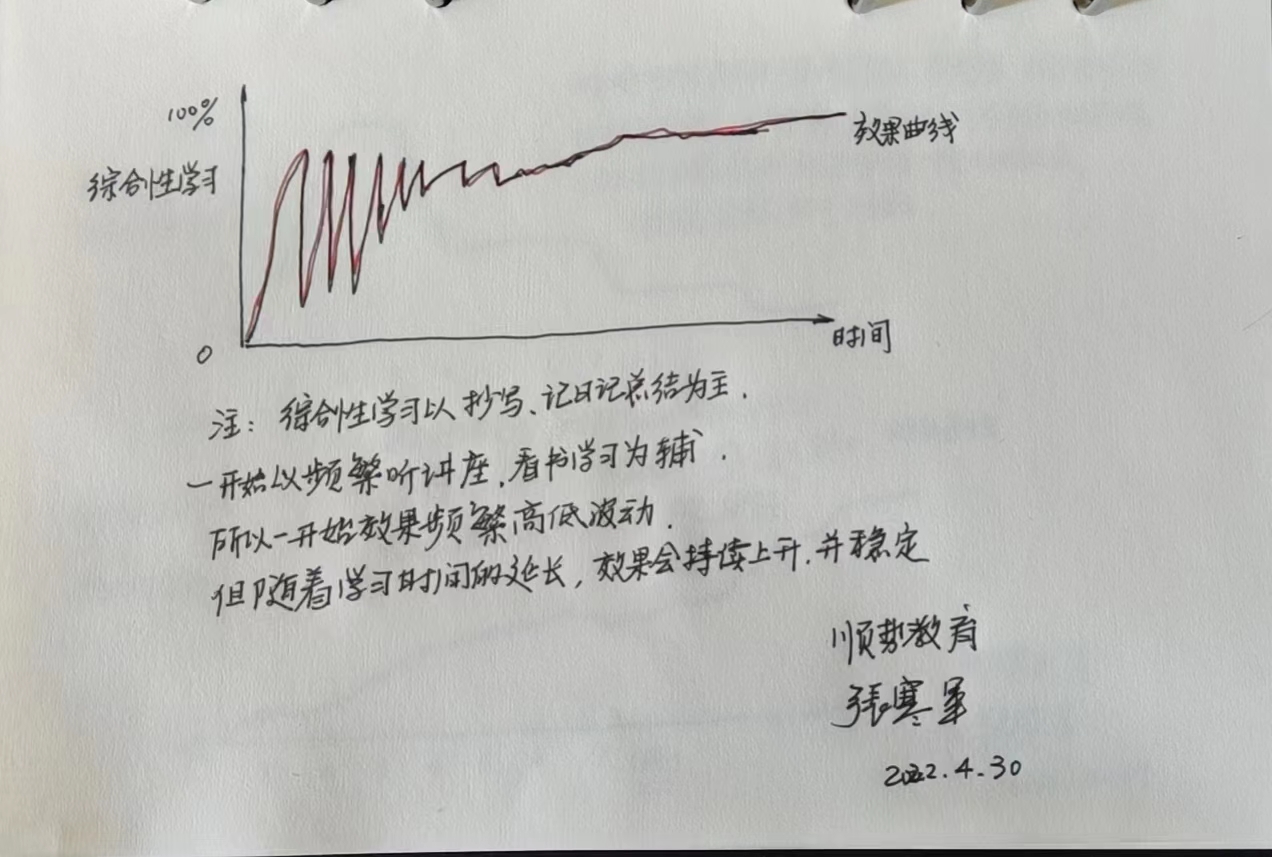 100%
综合性学习
效果曲线
0
时间
注：综合性学习以抄写、记日记总结为主.
一开始以频繁听讲座，看书学习为辅.
所以一开始效果频繁高低波动.
但随着学习时间的延长，效果会持续上升.并稳定
顺势教育
張寒軍
2022.4.30